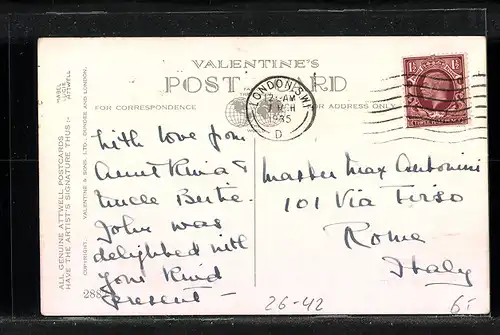 VALENTINE'S
POST CARD
FOR CORRESPONDENCE
FOR ADDRESS ONLY
LONDON. S.W.1
12 AM
MCH
1935
D
1½ 1½
ALL GENUINE ATTWELL POSTCARDS
HAVE THE ARTIST'S SIGNATURE THUS :-
MABEL
LUCIE
ATTWELL
COPYRIGHT. VALENTINE & SONS. LTD., DUNDEE AND LONDON.
With love from
Aunt &
Uncle Bertie.
John was
delighted with
your kind
present —
288
Master Max Antonini
101 Via Tirso
Rome
Italy
26-42
6/-